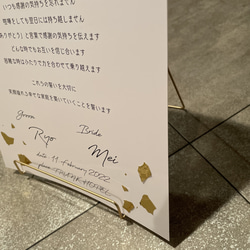 いつも感謝の気持ちを忘れません
喧嘩をしても翌日には持ち越しません
ありがとう」と言葉で感謝の気持ちを伝えます
どんな時でもお互いを信じ合います
困難な時はふたりで力を合わせて乗り越えます
これらの誓いを大切に
笑顔溢れる幸せな家庭を築いていくことを誓います
Groom
Bride
Ryo
Mei
date: 11 February 2022
place: